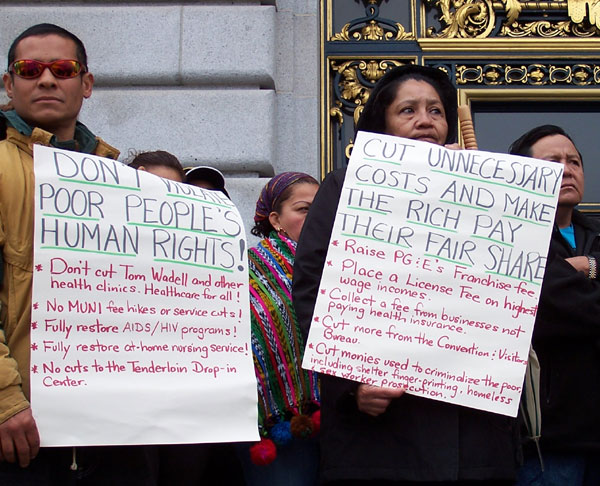 DON'T VIOLATE
POOR PEOPLE'S
HUMAN RIGHTS!
* Don't cut Tom Wadell and other
health clinics. Healthcare for all!
* No MUNI fee hikes or service cuts!
* Fully restore AIDS/HIV programs!
* Fully restore at-home nursing service!
* No cuts to the Tenderloin Drop-in
Center.
CUT UNNECESSARY
COSTS AND MAKE
THE RICH PAY
THEIR FAIR SHARE
* Raise PG&E's Franchise fee.
* Place a License Fee on highest
wage incomes.
* Collect a fee from businesses not
paying health insurance.
* Cut more from the Convention & Visitors
Bureau.
* Cut monies used to criminalize the poor
including shelter finger-printing, homeless
& sex worker prosecution.